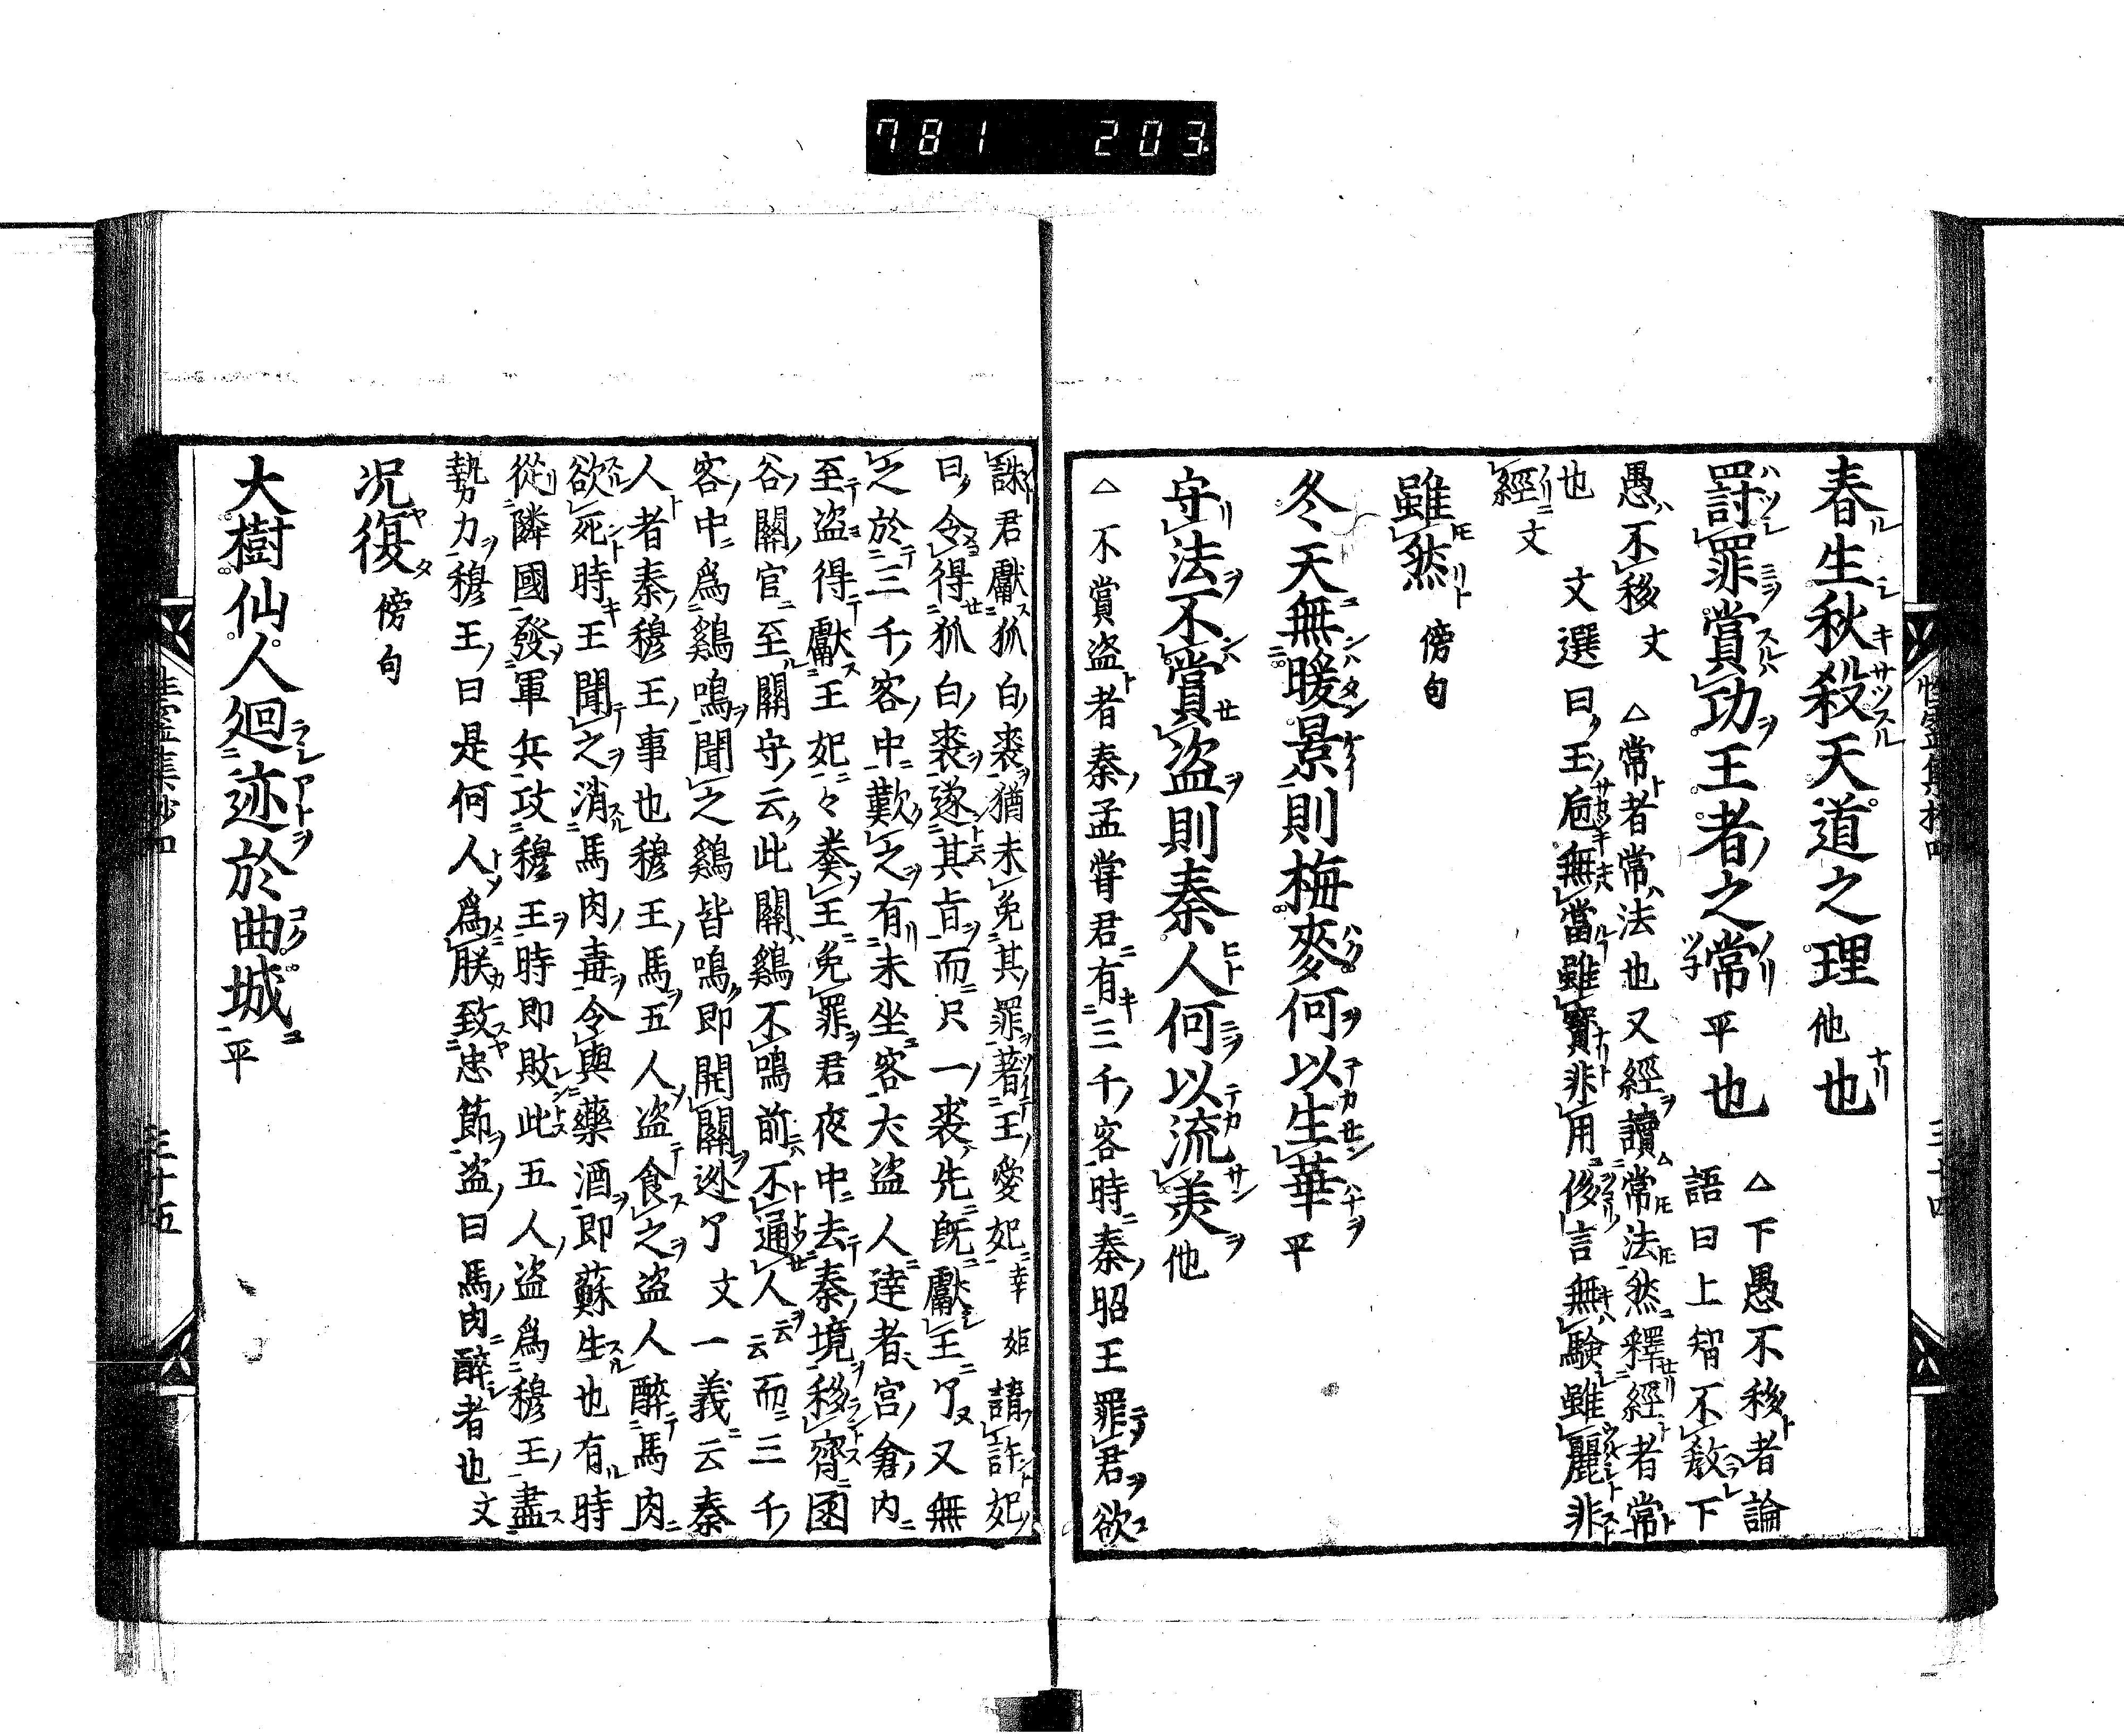 781 203
春生秋殺天道之理他也
罸罪賞功王者之常平也
△下愚不移者論
語曰上智不敎下
愚不移文 △常者常法也又經讀常法然釋經者常
也 文選曰王巵無當雖寳非用侈言無驗雖麗非
經文
雖然傍句
冬天無暖景則梅麥何以生華平
守法不賞盗則秦人何以流美他
△不賞盗者秦孟甞君有三千客時秦昭王罪君欲
誅君獻狐白裘猶未免其罪著王愛妃幸姫請許妃
曰令得狐白裘遂其㫖而只一裘先既獻王了又無
之於三千客中歎之有未坐客大盗人達者宮倉内
至盗得獻王妃々奏王免罪君夜中去秦境移齊国
谷關官至關守云此關鷄不鳴前不通人云云而三千
客中爲鷄鳴聞之鷄皆鳴即開關迯了文一義云秦
人者秦穆王事也穆王馬五人盗食之盗人醉馬肉
欲死時王聞之消馬肉毒令與藥酒即蘇生也有時
從隣國發軍兵攻穆王時即敗此五人盗爲穆王盡
勢力穆王曰是何人爲朕致忠節盗曰馬肉醉者也文
况復傍句
大樹仙人迴迹於曲城平
三十五